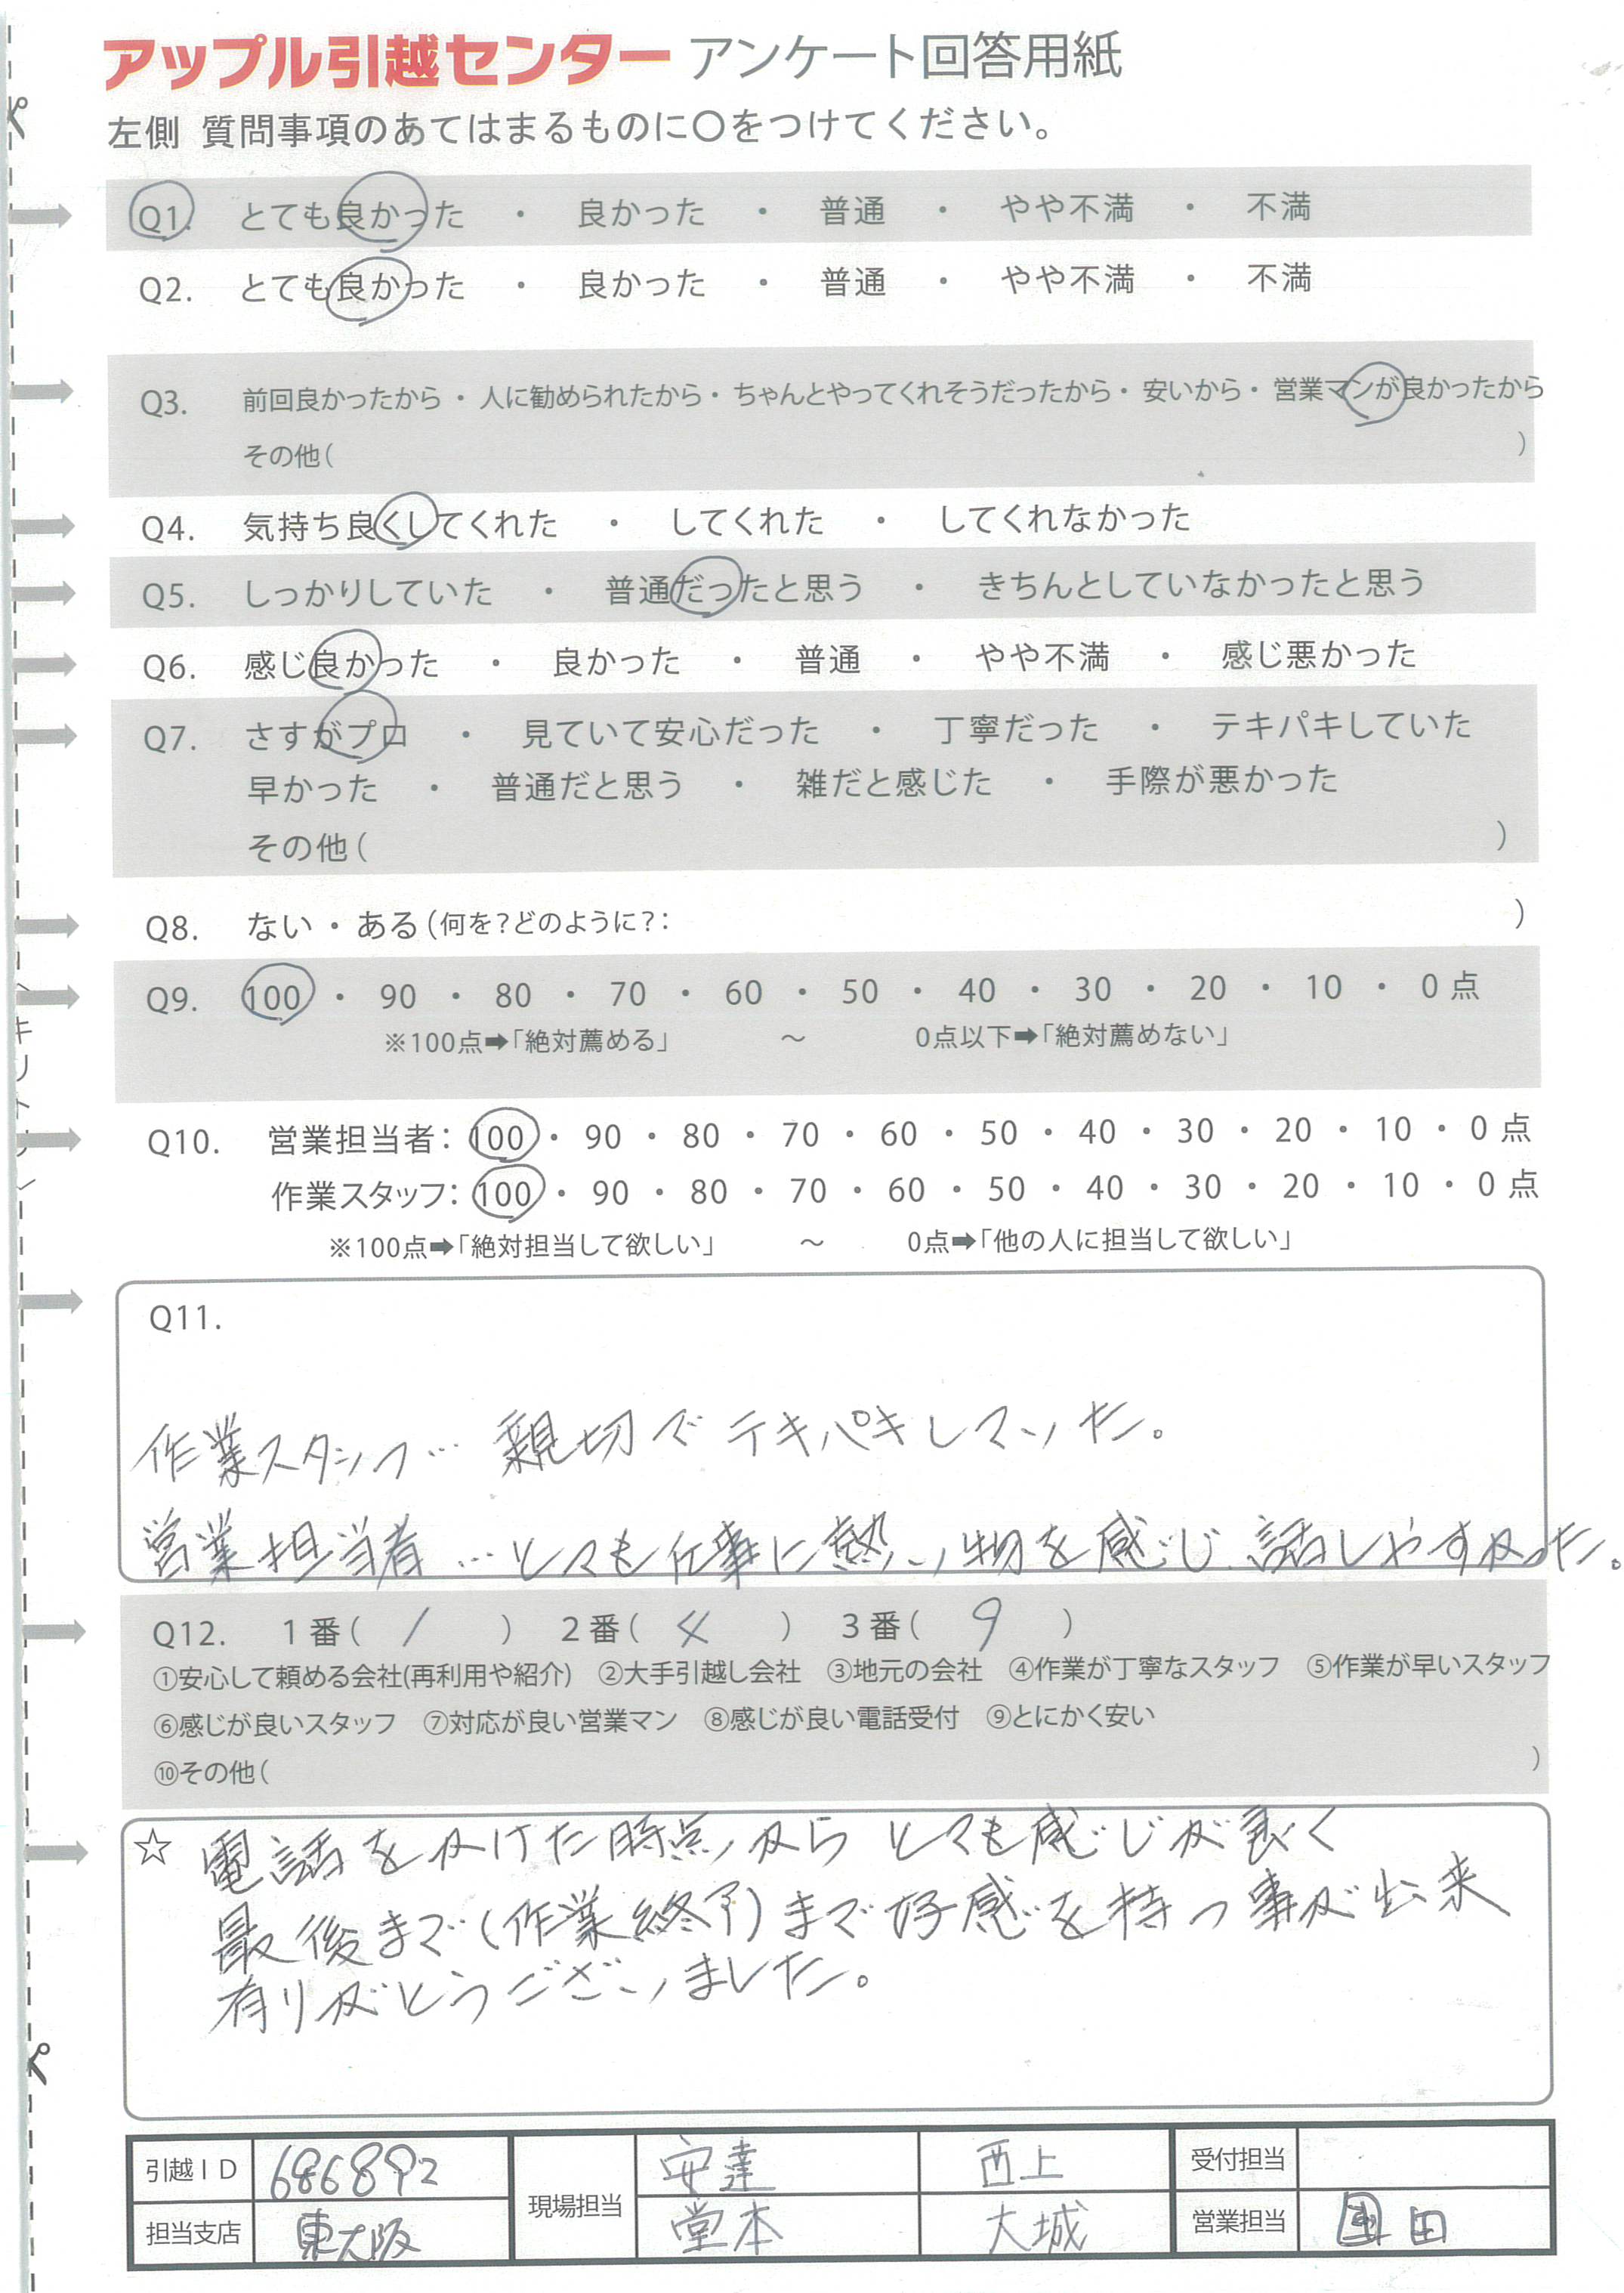 アップル引越センター アンケート回答用紙
左側 質問事項のあてはまるものに〇をつけてください。
Q1. とても良かった ・ 良かった ・ 普通 ・ やや不満 ・ 不満
Q2. とても良かった ・ 良かった ・ 普通 ・ やや不満 ・ 不満
Q3. 前回良かったから ・ 人に勧められたから ・ ちゃんとやってくれそうだったから ・ 安いから ・ 営業マンが良かったから
その他( )
Q4. 気持ち良くしてくれた ・ してくれた ・ してくれなかった
Q5. しっかりしていた ・ 普通だったと思う ・ きちんとしていなかったと思う
Q6. 感じ良かった ・ 良かった ・ 普通 ・ やや不満 ・ 感じ悪かった
Q7. さすがプロ ・ 見ていて安心だった ・ 丁寧だった ・ テキパキしていた
早かった ・ 普通だと思う ・ 雑だと感じた ・ 手際が悪かった
その他( )
Q8. ない ・ ある(何を?どのように?: )
Q9. 100 ・ 90 ・ 80 ・ 70 ・ 60 ・ 50 ・ 40 ・ 30 ・ 20 ・ 10 ・ 0 点
※100点➡「絶対薦める」 ～ 0点以下➡「絶対薦めない」
Q10. 営業担当者: 100 ・ 90 ・ 80 ・ 70 ・ 60 ・ 50 ・ 40 ・ 30 ・ 20 ・ 10 ・ 0 点
作業スタッフ: 100 ・ 90 ・ 80 ・ 70 ・ 60 ・ 50 ・ 40 ・ 30 ・ 20 ・ 10 ・ 0 点
※100点➡「絶対担当して欲しい」 ～ 0点➡「他の人に担当して欲しい」
Q11.
作業スタッフ… 親切でテキパキしていた。
営業担当者…とても仕事に熱い物を感じ 話しやすかった。
Q12. 1番( 1 ) 2番( 4 ) 3番( 9 )
①安心して頼める会社(再利用や紹介) ②大手引越し会社 ③地元の会社 ④作業が丁寧なスタッフ ⑤作業が早いスタッフ
⑥感じが良いスタッフ ⑦対応が良い営業マン ⑧感じが良い電話受付 ⑨とにかく安い
⑩その他( )
☆ 電話をかけた時点から とても感じが良く
最後まで(作業終了)まで好感を持つ事が出来
有りがとうございました。
引越ID 686892 現場担当 安達 西上 受付担当
担当支店 東大阪 堂本 大城 営業担当 園田
キリトリ